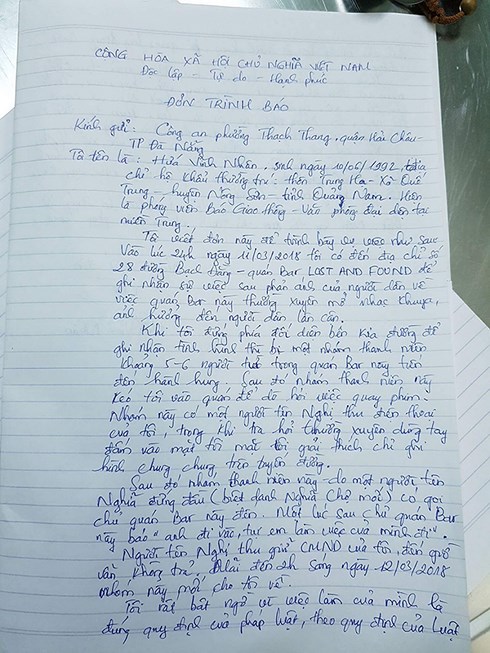 CÔNG HÒA XÃ HỘI CHỦ NGHĨA VIỆT NAM
Độc lập - Tự do - Hạnh phúc
ĐƠN TRÌNH BÁO
Kính gửi: Công an phường Thạch Thang, quận Hải Châu -
TP Đà Nẵng
Tôi tên là: Hứa Vĩnh Nhân, sinh ngày 10/06/1992,
chỉ hộ khẩu thường trú: thôn Trung Hạ - Xã Quế
Trung - huyện Nông Sơn - tỉnh Quảng Nam. Hiện
là phóng viên Báo Giao thông - Văn phòng đại diện tại
miền Trung.
Tôi viết đơn này để trình bày sự việc như sau:
Vào lúc 24h ngày 11/03/2018 tôi có đến địa chỉ số
28 đường Bạch Đằng - quán Bar LOST AND FOUND để
ghi nhận sự việc sau phản ánh của người dân về
việc quán Bar này thường xuyên mở nhạc khuya,
ảnh hưởng đến người dân lân cận.
Khi tôi đứng phía đối diện bên kia đường để
ghi nhận tình hình thì bị một nhóm thanh niên
khoảng 5-6 người từ trong quán Bar này tiến
đến hành hung. Sau đó nhóm thanh niên này
kéo tôi vào quán để dò hỏi việc quay phim.
Nhóm này có một người tên Nghị thu điện thoại
của tôi, trong khi tra hỏi thường xuyên dùng tay
đấm vào mặt tôi mặc tôi giải thích chỉ ghi
hình chung chung, trên tuyến đường.
Sau đó nhóm thanh niên này do một người tên
Nghĩa đứng đầu (biệt danh Nghĩa Chợ mới) có gọi
chủ quán Bar này đến. Một lúc sau chủ quán Bar
này bảo "anh đi vào, tụi em làm việc của mình đi".
Người tên Nghị thu giữ CMND của tôi đến giờ
vẫn không trả. Mãi đến 2h sáng ngày 12/03/2018
nhóm này mới cho tôi về.
Tôi rất bất ngờ vì việc làm của mình là
đúng quy định của pháp luật, theo quy định của Luật